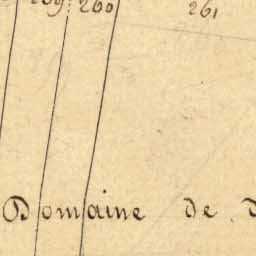 259. 260 261
Domaine de